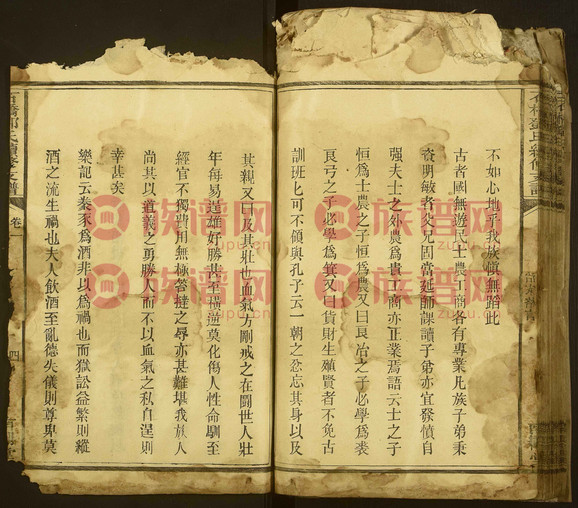 不如心地乎我族慎無蹈此
古者國無遊民士農工商各有專業凡族子弟秉
資明敏者父兄固當延師課讀子弟亦宜發憤自
强夫士之外農爲貴工商亦正業焉語云士之子
恒爲士農之子恒爲農又曰良冶之子必學爲裘
良弓之子必學爲箕又曰貨財生殖賢者不免古
訓班匕可不領與孔子云一朝之忿忘其身以及
其親又曰及其壯也血氣方剛戒之在鬭世人壯
年每易逞雄好勝甚至橫逆莫化傷人性命馴至
經官不獨費用無極笞撻之辱亦甚難堪我族人
尚其以道義之勇勝人而不以血氣之私自逞則
幸甚矣
樂記云豢豕爲酒非以爲禍也而獄訟益繁則縱
酒之流生禍也夫人飲酒至亂德失儀則尊卑莫
卷一
四
族譜网
zupu.cn